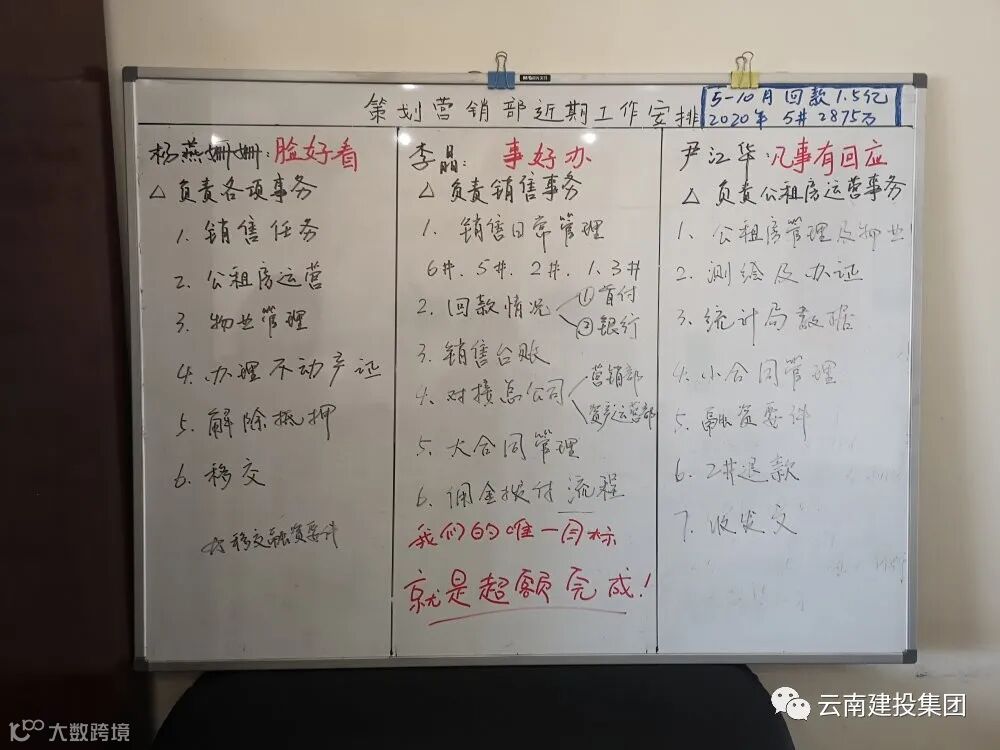 策划营销部近期工作安排
5-10月回款1.5亿
2020年 5# 2875万
杨燕姗姗：脸好看
△ 负责各项事务
1. 销售任务
2. 公租房运营
3. 物业管理
4. 办理不动产证
5. 解除抵押
6. 移交
☆移交融资要件
李晶： 事好办
△ 负责销售事务
1. 销售日常管理
6#. 5#. 2#. 1. 3#
2. 回款情况
①首付
②银行
3. 销售台账
4. 对接总公司
营销部
资产运营部
5. 大合同管理
6. 佣金拨付流程
我们的唯一目标
就是超额完成！
尹江华：凡事有回应
△ 负责公租房运营事务
1. 公租房管理及物业
2. 测绘及办证
3. 统计局数据
4. 小合同管理
5. 融资要件
6. 2#退款
7. 收发文
云南建投集团
大数跨境